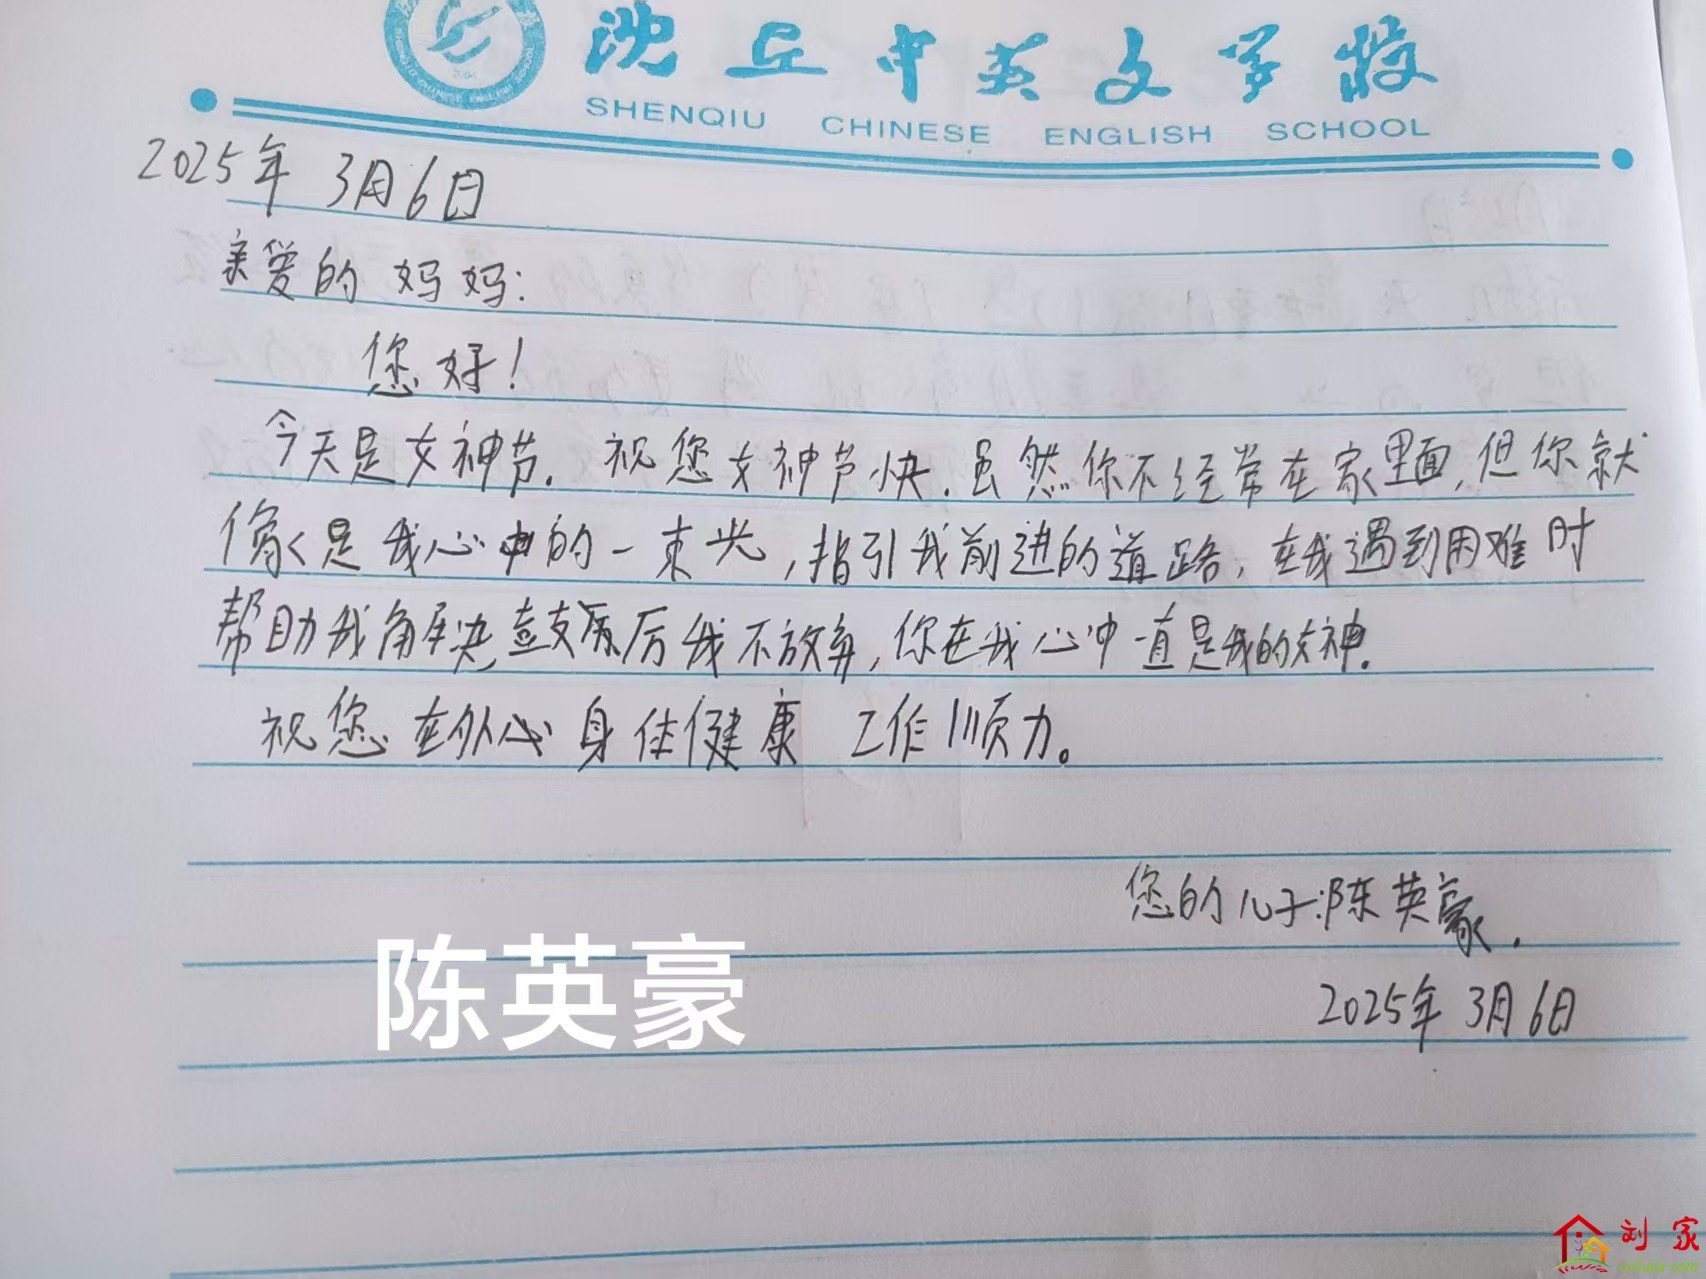 沈丘中英文学校
SHENQIU CHINESE ENGLISH SCHOOL
2025年 3月6日
亲爱的妈妈:
您好!
今天是女神节. 祝您女神节快. 虽然你不经常在家里面, 但你就
像是我心中的一束光, 指引我前进的道路, 在我遇到困难时
帮助我解决 鼓励我不放弃, 你在我心中一直是我的女神.
祝您在外 身体健康 工作顺力。
您的儿子:陈英豪.
2025年 3月6日
陈英豪
刘家